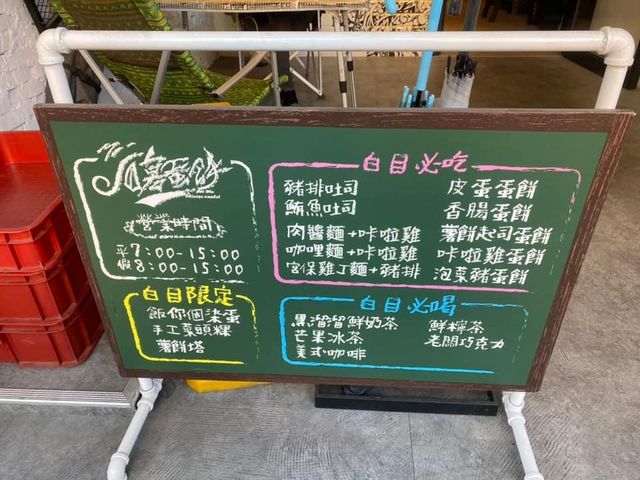 營業時間
平7:00-15:00
假8:00-15:00
白目限定
飯你個渿蛋
手工菜頭粿
薯餅塔
白目必吃
豬排吐司
鮪魚吐司
肉醬麵+咔啦雞
咖哩麵+咔啦雞
宮保雞丁麵+豬排
皮蛋蛋餅
香腸蛋餅
薯餅起司蛋餅
咔啦雞蛋餅
泡菜豬蛋餅
白目必喝
黑溜溜鮮奶茶
芒果冰茶
美式咖啡
鮮檸茶
老闆巧克力